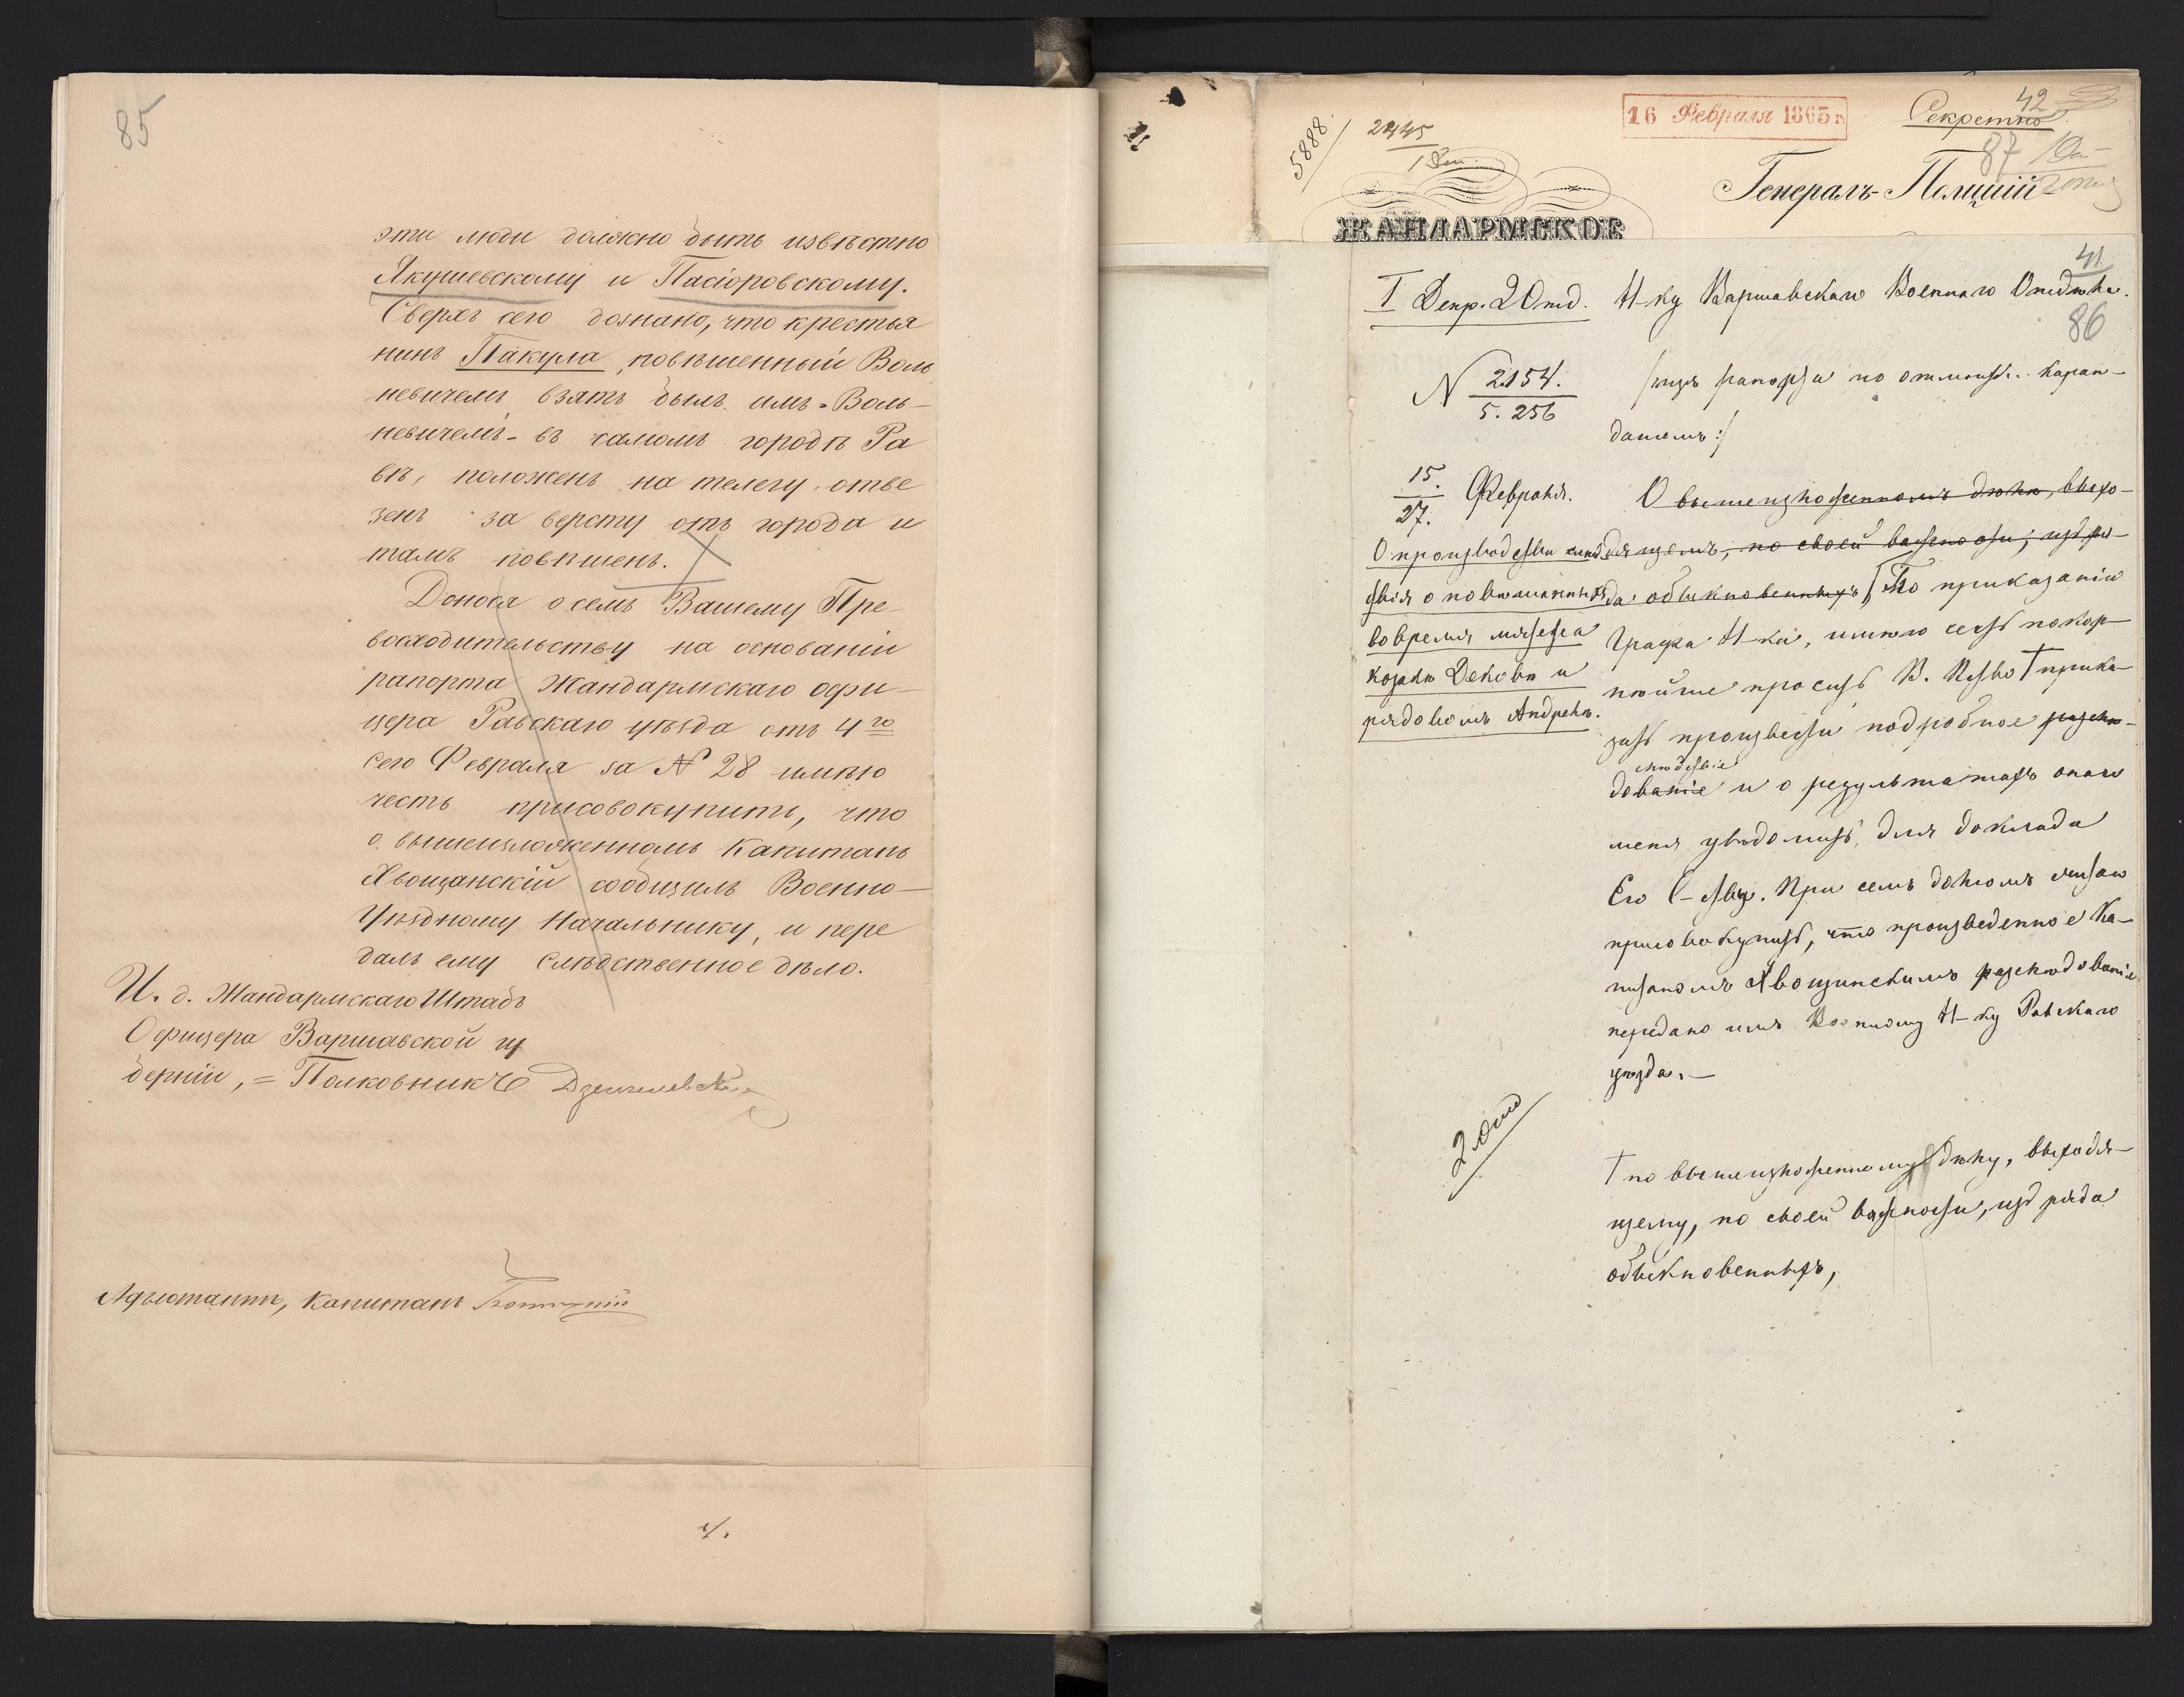 85
эти люди должно быть извѣстно
Якушевскому и Пасіоровскому.
Сверхъ сего дознано, что крестья
нинъ Пакула, повѣшенный Воль
невичемъ, взятъ былъ имъ-Воль-
невичемъ- въ самомъ городѣ Ра
вѣ, положенъ на телегу, отве
зенъ за версту отъ города и
тамъ повѣшенъ.
Донося о семъ Вашему Пре-
восходительству на основаніи
рапорта Жандармскаго офи-
цера Равскаго уѣзда отъ 4го
сего Февраля за № 28 имѣю
честь присовокупить, что
о вышеизложенномъ Капитанъ
Хвощинскій сообщилъ Военно-
Уѣздному Начальнику, и пере
далъ ему слѣдственное дѣло.
И. д. Жандармскаго Штабъ
Офицера Варшавской гу
берніи, = Полковникъ
Адъютантъ, Капитанъ
4.
16 Февраля 1865 г.
Секретно
42
5888.
2445
87
Генералъ-Полиціи
ЖАНДАРМСКОЕ
41
86
I Депр. 2 Отд.
Н-ку Варшавскаго Военнаго Отдѣла.
№ 2154.
5.256
рапорта по отмѣткѣ каран-
дашемъ:/
15. Февраля.
27.
О производствѣ слѣд
ствія о повѣшенныхъ
во время мятежа
козакѣ Дековѣ и
рядовомъ Андреѣ.
О вышеизложенномъ дѣлѣ, выхо-
дящемъ, по своей важности, изъ ря-
да обыкновенныхъ По приказанію
Графа Н-ка, имѣю честь покор-
нѣйше просить В. Пр-ство † прика-
зать произвести подробное разслѣ-
слѣдствіе
дованіе и о результатахъ онаго
меня увѣдомить, для доклада
Его С-ству. При семъ долгомъ считаю
присовокупить, что произведенное Ка-
питаномъ Хвощинскимъ разслѣдованіе
передано имъ Военному Н-ку Равскаго
уѣзда.-
2 отд
† по вышеизложенному дѣлу, выходя-
щему, по своей важности, изъ ряда
обыкновенныхъ,